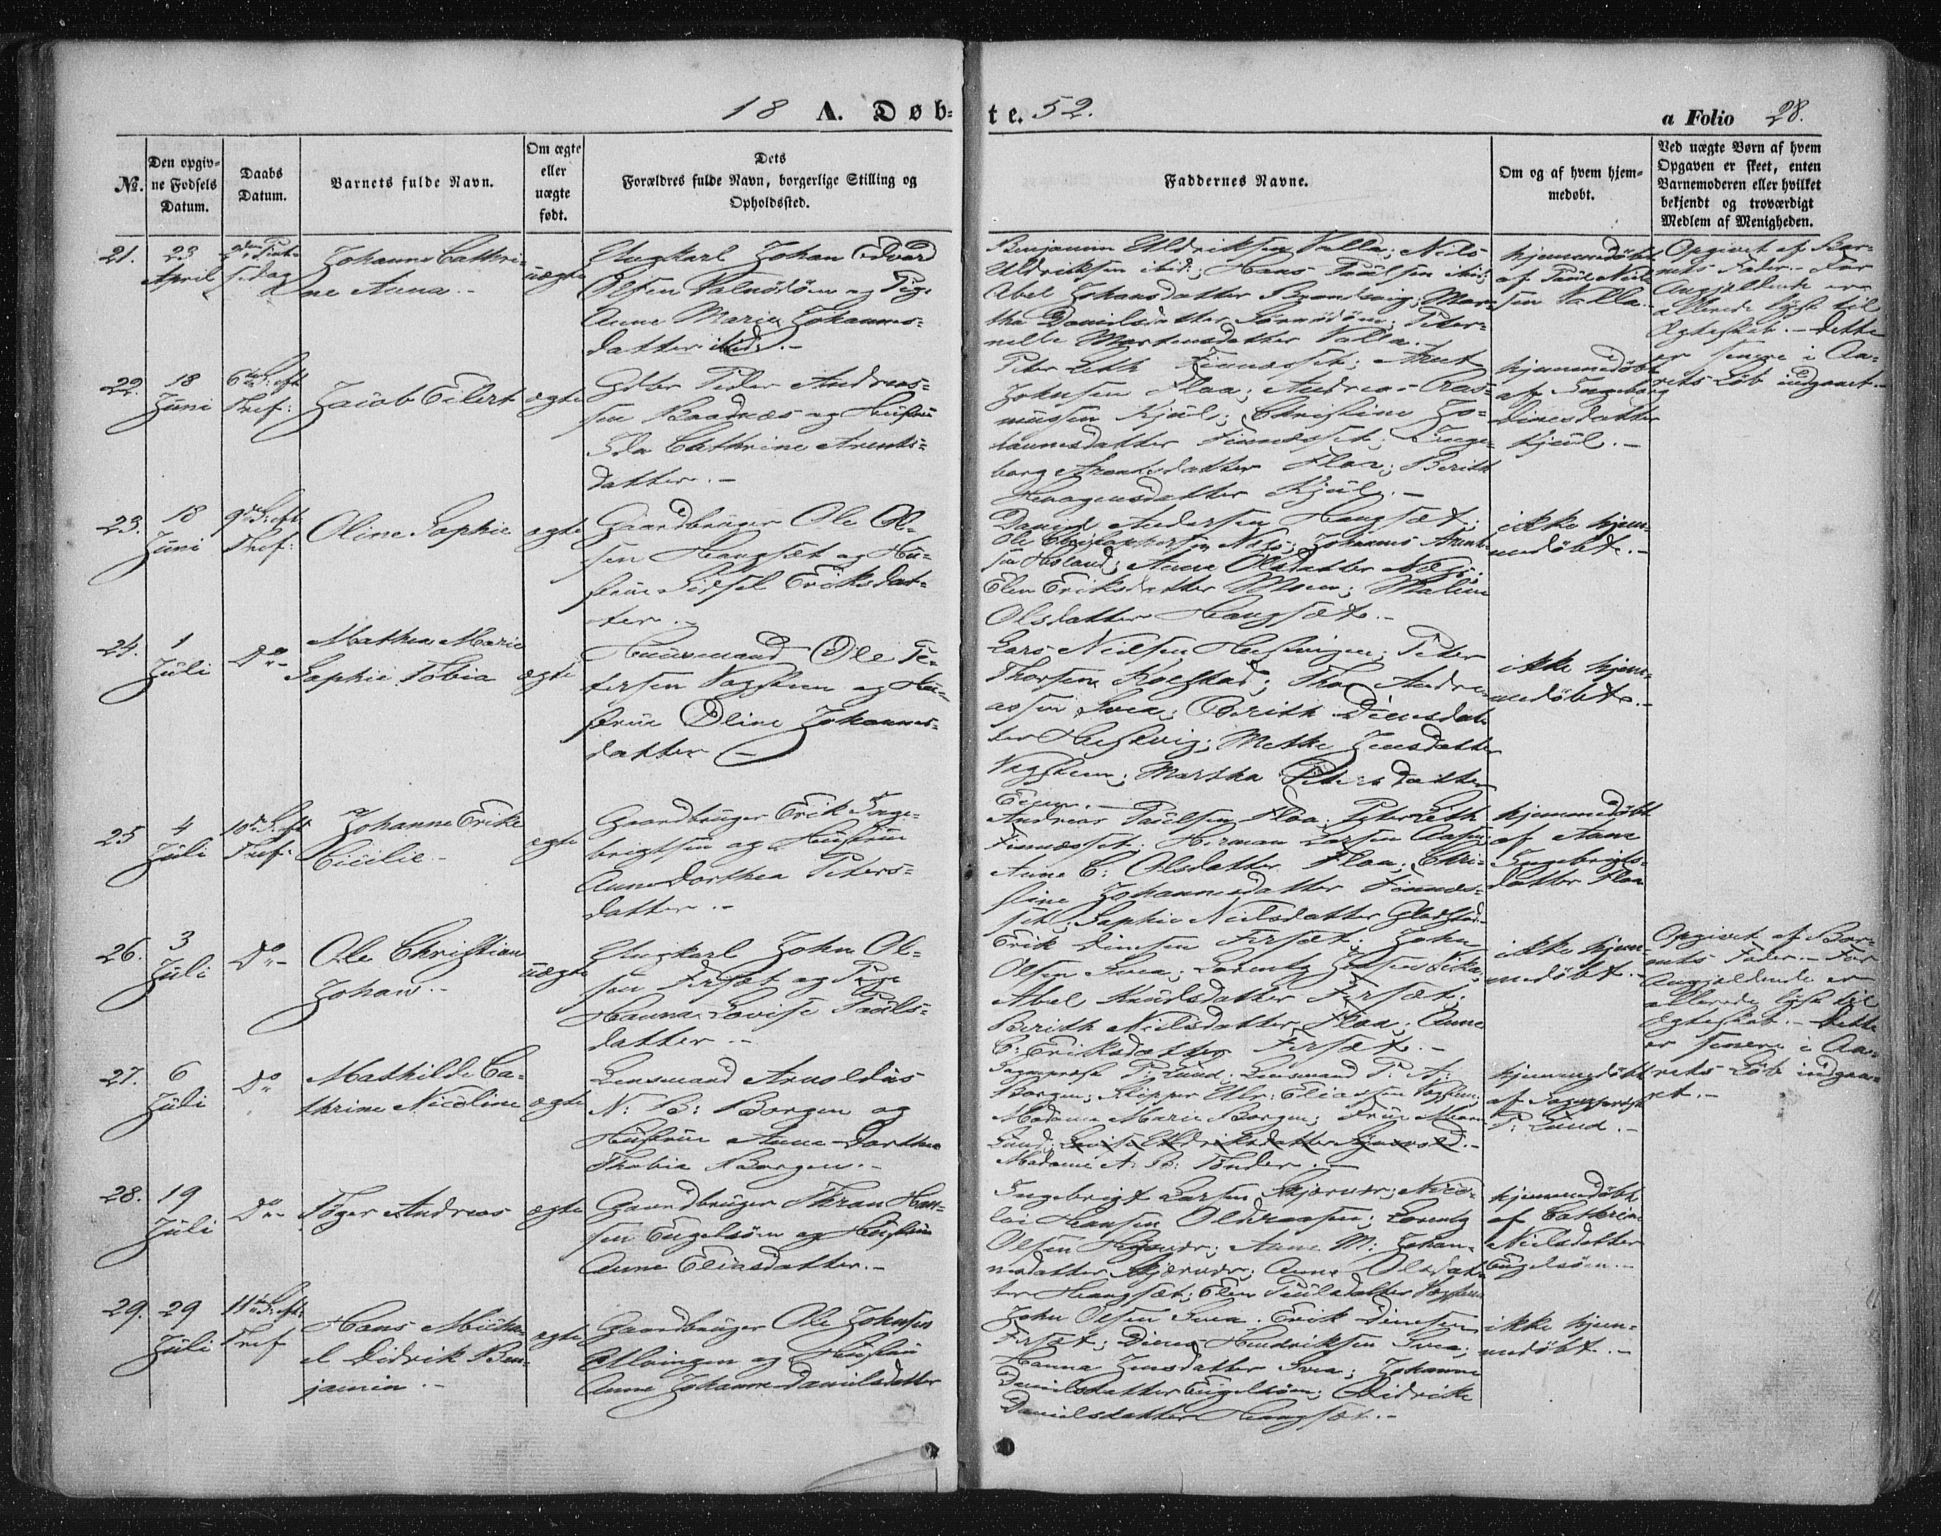 18 A. Døb-
te. 52.
a Folio 28.
No.
Den opgiv-
ne Fødsels
Datum.
Daabs
Datum.
Barnets fulde Navn.
Om ægte
eller
uægte
født.
Dets
Forældres fulde Navn, borgerlige Stilling og
Opholdssted.
Faddernes Navne.
Om og af hvem hjem-
medøbt.
Ved uægte Børn af hvem
Opgaven er skeet, enten
Barnemoderen eller hvilket
bekjendt og troværdigt
Medlem af Menigheden.
21.
23
April
2den Pint-
sedag
Johanne Cathri-
ne Anna.-
uægte
Ungkarl Johan Edvard
Olsen og Pige
Anne Marie Johannes-
datter ibid:-
Benjamin Uldriksen Valla; Nils
Uldriksen ibid; Hans Paulsen ibid;
Abel Johansdatter Mar-
tha Danielsdatter Peter-
nelle Mortensdatter Valla.
hjemmedøbt
af Paul Niel-
sen Valla.
Opgivet af Bar-
nets Fader.- For
Angjeldende er
allerede lyst til
Egteskab.- Dette
er senere i Aa-
rets Løb indgaaet.-
22.
18
Juni
6te S: eft
Tref:
Jacob Eilert
ægte
Gdbr Peder Andreas-
sen Baadnæs og Hustru
Ida Cathrine Arents-
datter.-
Peter Leth Finnæsset; Arnt
Johnsen Flaa; Andreas Ras-
mussen Kjul; Christine Jo-
hannesdatter Finnæsset; Inge-
borg Arentsdatter Flaa; Berith
Haagensdatter Kjul.-
hjemmedøbt
af Ingeborg
Dinesdatter
Kjul.-
23.
18
Juni
9de S: eft
Tref:
Oline Sophie
ægte
Gaardbruger Ole Ol-
sen Haugsæt og Hu-
strue Sidsel Eriksdat-
ter.-
Daniel Andersen Haugsæt;
Ole Christophersen Næs; Johannes Arent-
sen Anne Olsdatter Næs;
Elen Eriksdatter Moen; Maline
Olsdatter Haugsæt.-
ikke hjem-
medøbt.-
24.
1
Juli
Do-
Mathea Marie
Sophie Tobia
ægte
Huusmand Ole Pe-
tersen Vagsteen og Hu-
strue Oline Johannes-
datter.-
Lars Nielsen Peter
Thorsen Kolstad; Thor Andre-
assen Svea; Berith Dinesdat-
ter Mette Jensdatter
Vagsteen; Martha Petersdatter
ikke hjem-
medøbt.-
25
4
Juli
10de S: eft
Tref:
Johanne Erike
Cecilie.-
ægte
Gaardbruger Erik Inge-
brigtsen og Hustrue
Anne Dorthea Peters-
datter.-
Andreas Paulsen Flaa; Peter Leth
Finnæsset; Herman Larsen Aasen;
Anne C: Olsdatter Flaa; Chri-
stine Johannesdatter Finnæs-
set; Sophie Nielsdatter Gladstad.
hjemmedøbt
af Anne
Ingebrigts-
datter Flaa
26.
3
Juli
Do-
Ole Christian
Johan.-
uægte
Ungkarl John Ol-
sen Forsæt og Pige
Hanna Lovise Pauls-
datter.-
Erik Dinesen Forsæt; John
Olsen Svea; Lorents Jensen
Abel Knudsdatter Forsæt;
Berith Nielsdatter Flaa; Anne
C: Eriksdatter Forsæt.-
ikke hjem-
medøbt.-
Opgivet af Bar-
nets Fader.- For
Angjeldende er
allerede lyst til
Egteskab.- Dette
er senere i Aa-
rets Løb indgaa-
et.-
27.
6
Juli
Do
Mathilde Ca-
thrine Nicoline
ægte
Lensmand Arnoldus
N: B: Borgen og
Hustrue Anne Dorthea
Thobia Borgen.-
Sognepræst P. Lund; Lensmand P. A:
Borgen; Skipper Ulr: Eliassen Vagsteen;
Madame Marie Borgen; Frue
Lund; Lovise Uldriksdatter
Madame A. B: Tønder.-
hjemmedøbt
af Sognepræst
P. Lund.-
28.
19
Juli
Do-
Toger Andreas
ægte
Gaardbruger Thran Han-
sen Engelsøen og Hustrue
Anne Eliasdatter.-
Ingebrigt Larsen Skjervær; Nico-
lai Hansen Lorents
Olsen Anne M: Johan-
nesdatter Skjervær; Anne Olsdat-
ter Haugsæt; Elen Paulsdatter Vagsteen
hjemmedøbt
af Cathrine
Nielsdatter
Engelsøen.-
29.
29
Juli
11te S: eft
Tref
Hans Micha-
el Didrik Ben-
jamin.-
ægte
Gaardbruger Ole Johnsen
og Hustru
Anne Johanna Danielsdatter
John Olsen Svea; Erik Dinesen
Forsæt; Dines Hendriksen Svea;
Hanna Jensdatter Svea; Johanne
Danielsdatter Engelsøen; Didrikke
Danielsdatter Haugsæt.-
ikke hjem-
medøbt.-